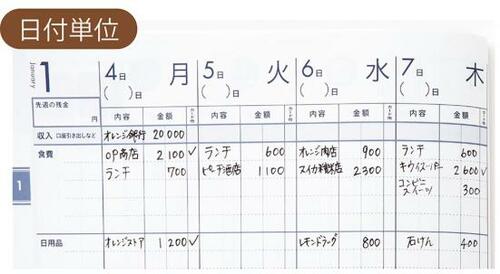 日付単位
1 January
4日 ( )日 月
5日 ( )日 火
6日 ( )日 水
7日 ( )日 木
先週の残金 円
内容 金額 カード他 内容 金額 カード他 内容 金額 カード他 内容 金額 カード他
収入 口座引き出しなど オレンジ銀行 20000
食費 OP商店 2100✓ ランチ 600 オレンジ肉店 900 ランチ 600
ランチ 700 ピーチ酒店 1100 スイカ精米店 2300 キウイスーパー 2600✓
コンビニスイーツ 300
1
日用品 オレンジストア 1200✓ レモンドラッグ 800 石けん 400